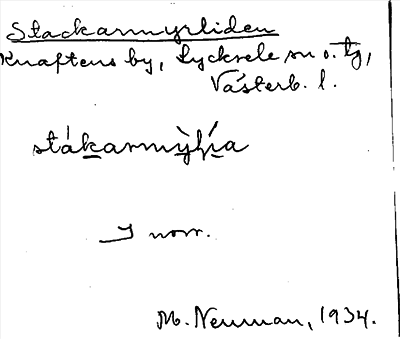 Stackarmyrliden
Knaftens by, Lycksele sn o. tg,
Västerb. l.
I norr.
M. Neuman, 1934.